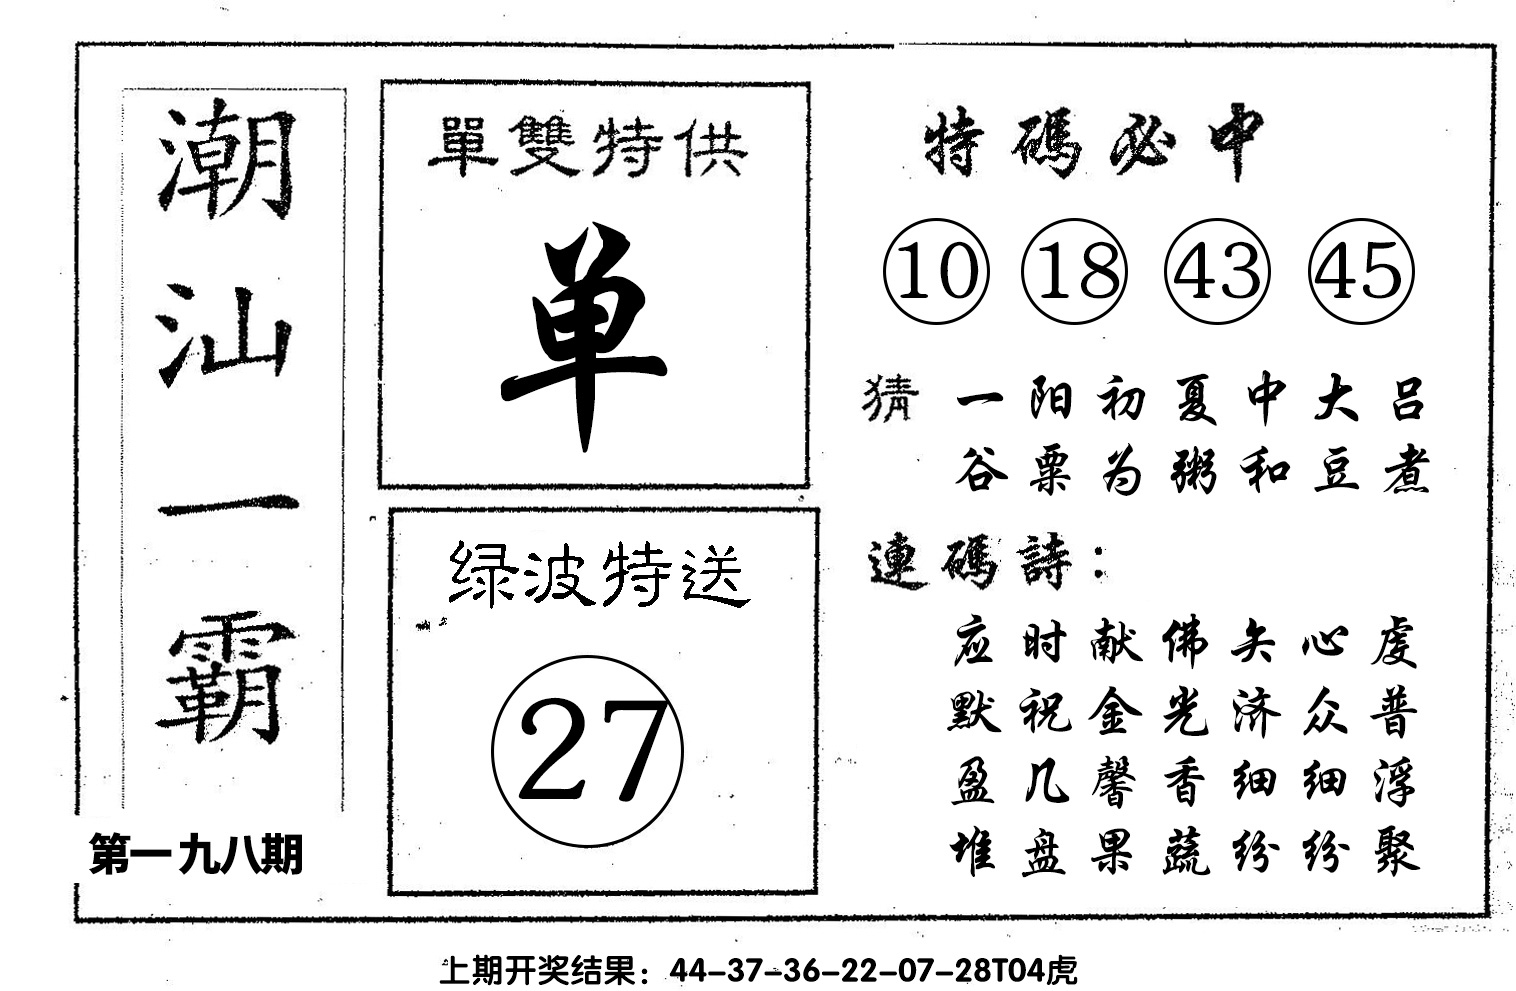 潮汕一霸
第一九八期
單雙特供
单
绿波特送
27
特碼必中
10 18 43 45
猜 一阳初夏中大吕
谷粟为粥和豆煮
連碼詩：
应时献佛矢心虔
默祝金光济众普
盈几馨香细细浮
堆盘果蔬纷纷聚
上期开奖结果：44-37-36-22-07-28T04虎